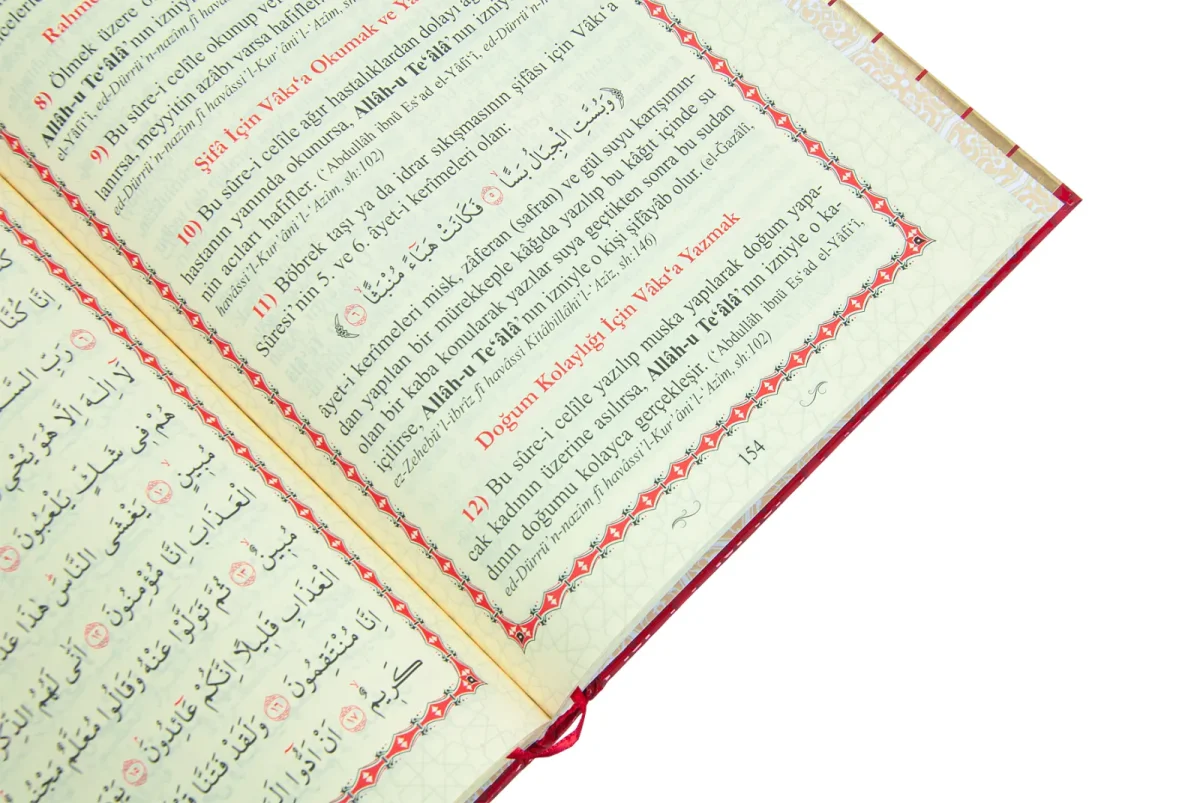 Rahme
8) Ölmek üzere o
Allâh-u Te‘âlâ’nın izniy
el-Yâfi‘î, ed-Dürrü’n-nazîm fî hava
9) Bu sûre-i celîle okunup ve
lanırsa, meyyitin azâbı varsa hafifler
ed-Dürrü’n-nazîm fî havâssi’l-Kur’âni’l-‘Azîm, sh:
Şifâ İçin Vâkı‘a Okumak ve Ya
10) Bu sûre-i celîle ağır hastalıklardan dolayı a
hastanın yanında okunursa, Allâh-u Te‘âlâ’nın izniy
nin acıları hafifler. (‘Abdullâh ibnü Es‘ad el-Yâfi‘î, ed-Dürrü’n-n
havâssi’l-Kur’âni’l-‘Azîm, sh:102)
11) Böbrek taşı ya da idrar sıkışmasının şifâsı için Vâkı‘a
Sûresi’nin 5. ve 6. âyet-i kerîmeleri olan:
﴿وَبُسَّتِ الْجِبَالُ بَسًّا ۙ﴿٥﴾ فَكَانَتْ هَبَٓاءً مُنْبَثًّا ۙ﴿٦﴾﴾
ayet-i kerimeleri misk, zâferan (safran) ve gül suyu karışımın-
dan yapılan bir mürekkeple kâğıda yazılıp bu kâğıt içinde su
olan bir kaba konularak yazılar suya geçtikten sonra bu sudan
içilirse, Allâh-u Te‘âlâ’nın izniyle o kişi şifâyâb olur. (el-Ğazâlî,
ez-Zehebü’l-ibrîz fî havâssi Kitâbillâhi’l-‘Azîz, sh:146)
Doğum Kolaylığı İçin Vâkı‘a Yazmak
12) Bu sûre-i celîle yazılıp muska yapılarak doğum yapa-
cak kadının üzerine asılırsa, Allâh-u Te‘âlâ’nın izniyle o ka-
dının doğumu kolayca gerçekleşir. (‘Abdullâh ibnü Es‘ad el-Yâfi‘î,
ed-Dürrü’n-nazîm fî havâssi’l-Kur’âni’l-‘Azîm, sh:102)
154
اِنَّا كُنَّا
﴿٦﴾ رَبِّ السَّ
لَٓا اِلٰهَ اِلَّا هُوَ يُحْيٖ
هُمْ فٖى شَكٍّ يَلْعَبُونَ ﴿٩﴾
مُبٖينٍ ﴿١٠﴾ يَغْشَى النَّاسَ هٰذَا عَذَ
الْعَذَابَ اِنَّا مُؤْمِنُونَ ﴿١٢﴾ اَنّٰى لَهُمُ الذِّكْرٰ
مُبٖينٌ ﴿١٣﴾ ثُمَّ تَوَلَّوْا عَنْهُ وَقَالُوا مُعَلَّمٌ مَجْنُ
الْعَذَابِ قَلٖيلًا اِنَّكُمْ عَٓائِدُونَ ﴿١٥﴾ يَوْ
اِنَّا مُنْتَقِمُونَ ﴿١٦﴾ وَلَقَدْ فَتَنَّا قَ
كَرٖيمٌ ﴿١٧﴾ اَنْ اَدُّٓوا اِلَ